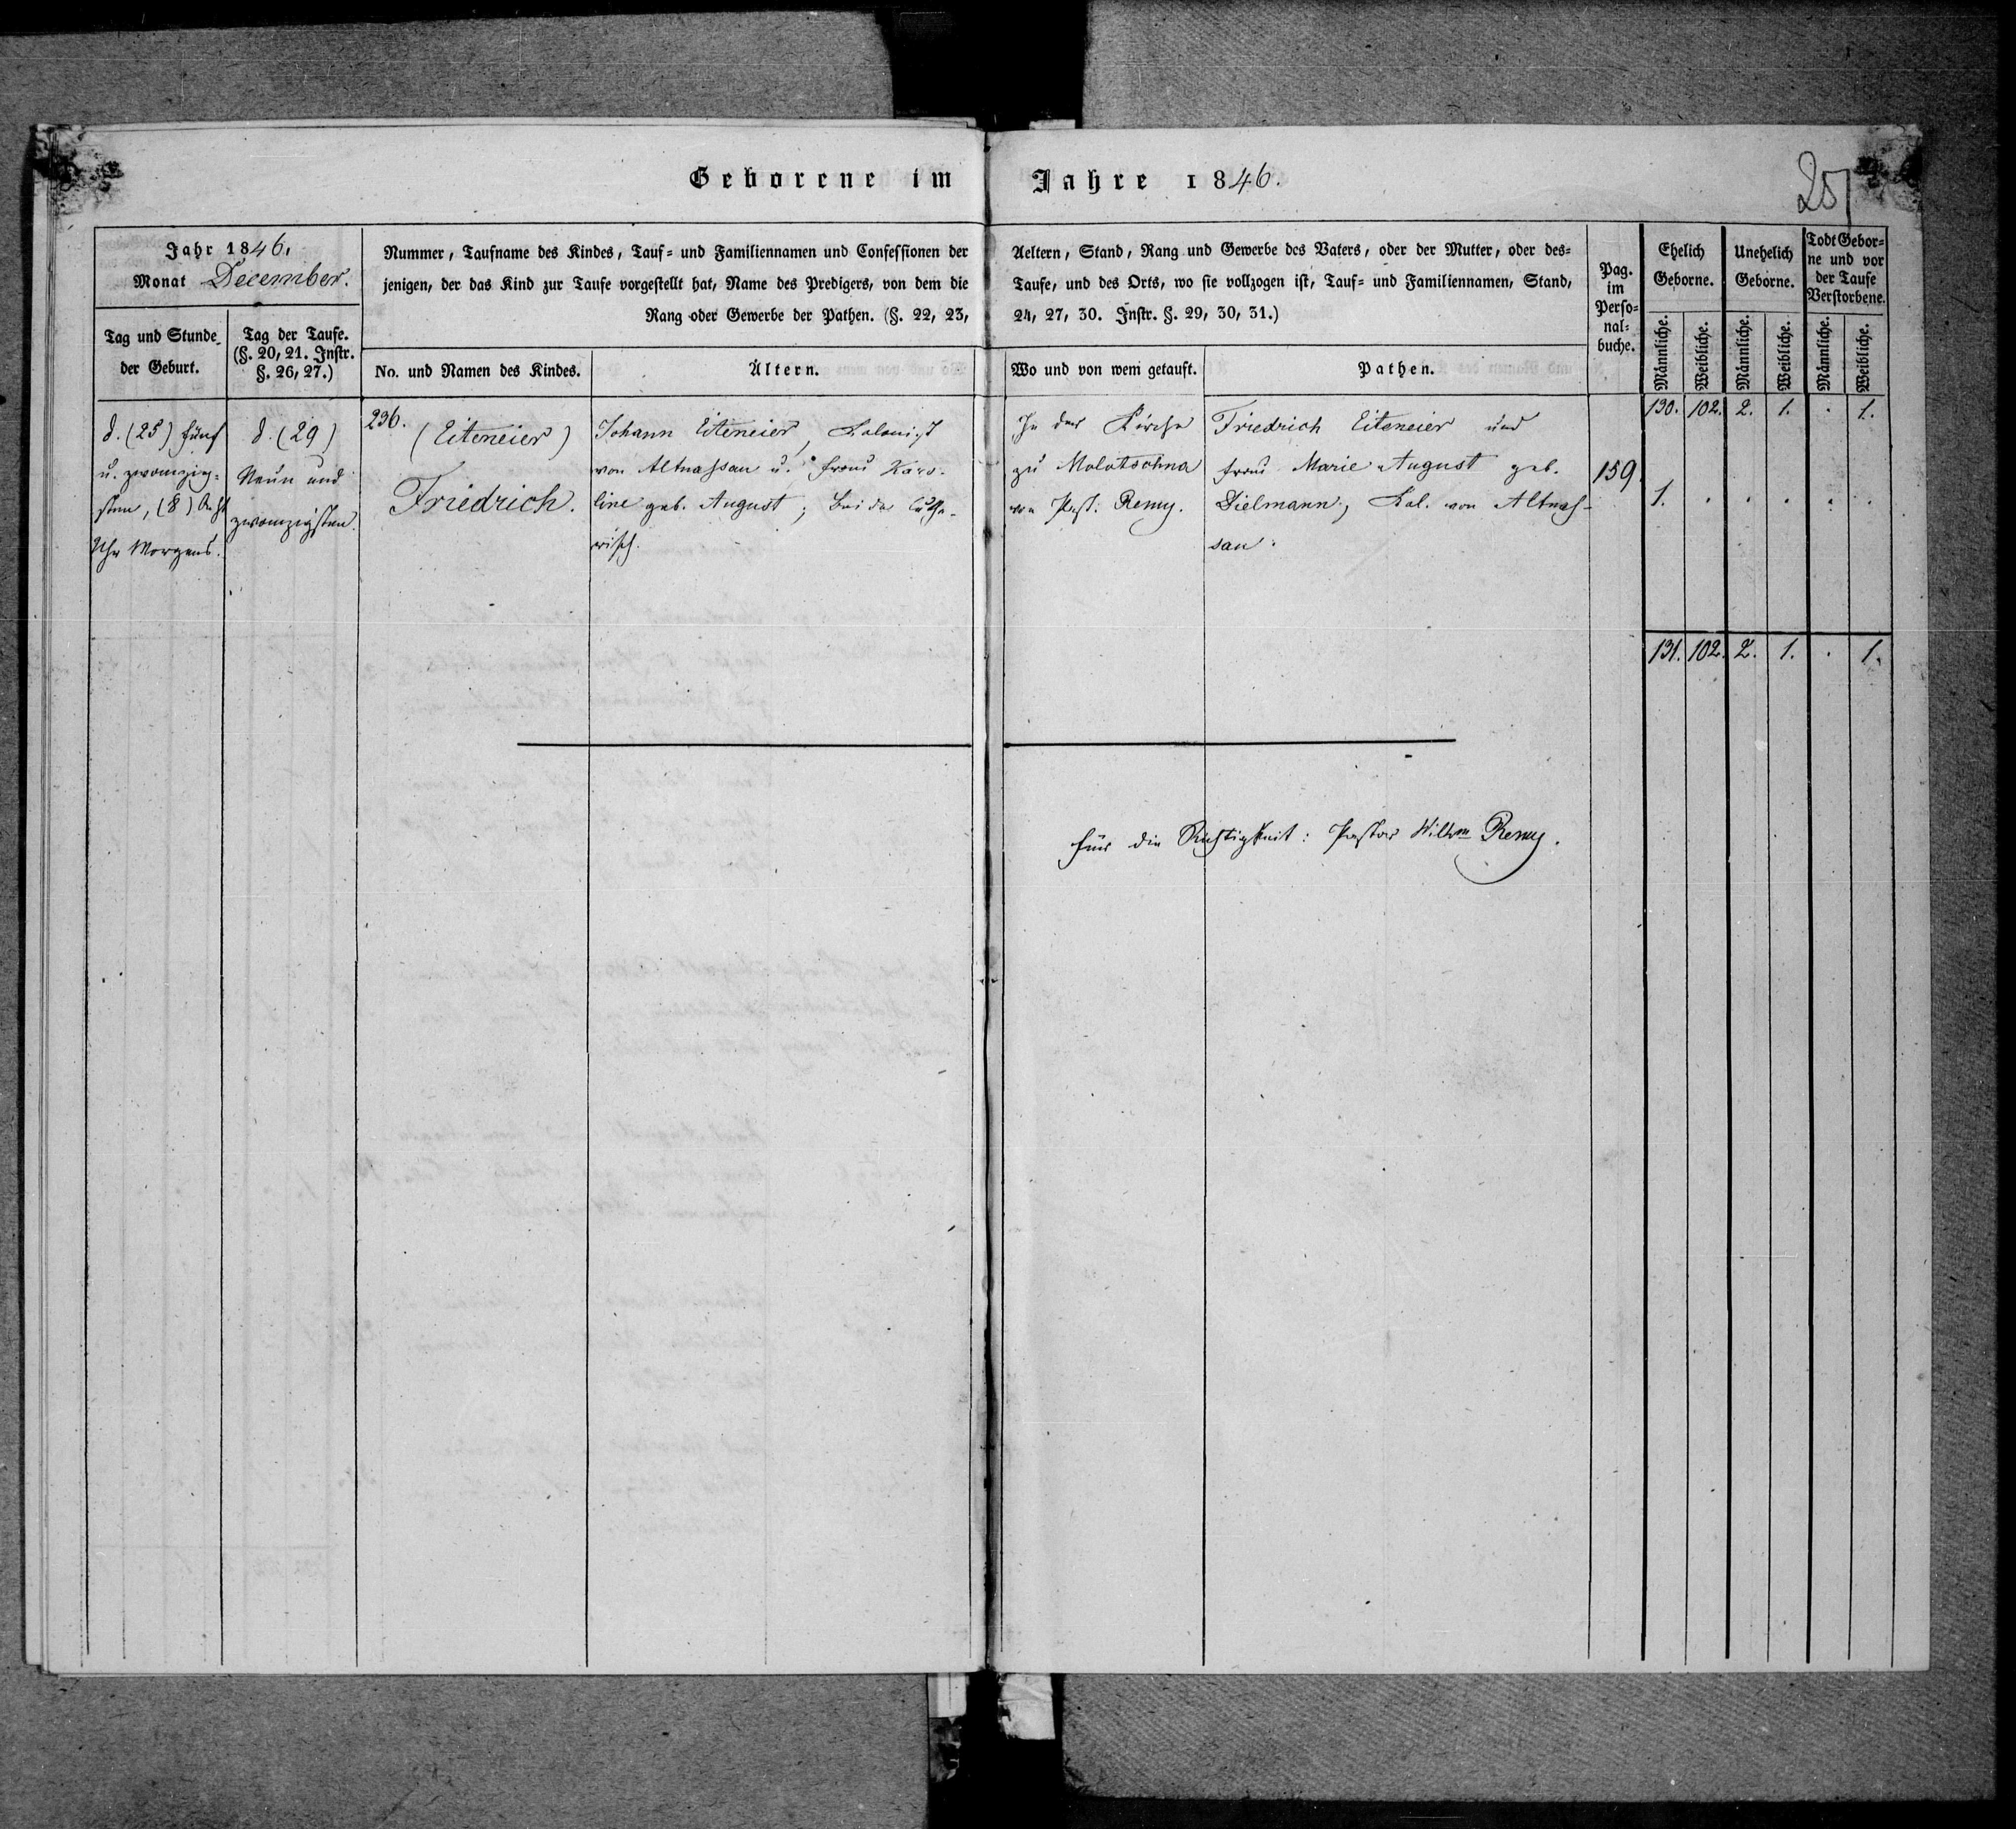 Geborene im Jahre 1846.
25
Jahr 1846.
Monat December.
Tag und Stunde
der Geburt.
Tag der Taufe.
(§. 20, 21. Instr.
§. 26, 27.)
Nummer, Taufname des Kindes, Tauf- und Familiennamen und Confessionen der Aeltern, Stand, Rang und Gewerbe des Vaters, oder der Mutter, oder des-
jenigen, der das Kind zur Taufe vorgestellt hat, Name des Predigers, von dem die Taufe, und des Orts, wo sie vollzogen ist, Tauf- und Familiennamen, Stand,
Rang oder Gewerbe der Pathen. (§. 22, 23, 24, 27, 30. Instr. §. 29, 30, 31.)
No. und Namen des Kindes.
Ältern.
Wo und von wem getauft.
Pathen.
Pag.
im
Perso-
nal-
buche.
Ehelich
Geborne.
Unehelich
Geborne.
Todt Gebor-
ne und vor
der Taufe
Verstorbene.
Männliche.
Weibliche.
Männliche.
Weibliche.
Männliche.
Weibliche.
130. 102. 2. 1. . 1.
d. (25) fünf
u. zwanzig-
sten, (8) Acht
Uhr Morgens.
d. (29)
Neun und
zwanzigsten.
236.
(Eiteneier)
Friedrich.
Johann Eiteneier, Kolonist
von Altnassau u. Frau Karo-
line geb. August; beide luthe-
risch.
In der Kirche
zu Molotschna
von Past. Remy.
Friedrich Eiteneier und
Frau Marie August geb.
Dielmann, Kol. von Altnas-
sau.
159.
1. . . . . .
131. 102. 2. 1. . 1.
für die Richtigkeit: Pastor Wilhm Remy.